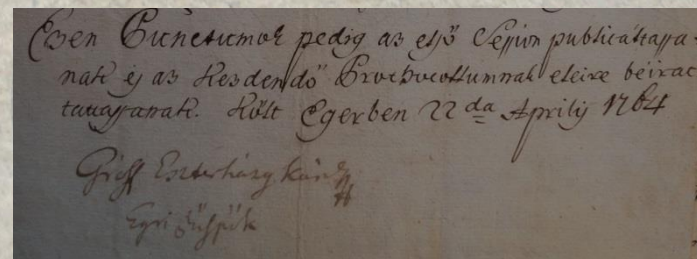 Ezen Punctumok pedig az elsö Session publicáltassa-
nak és az Kezdendö Prothocollumnak eleire béirat
tattassanak. Költ Egerben 22 da Aprilis 1764
Gróff Eszterházy Károly
Egri Püspök